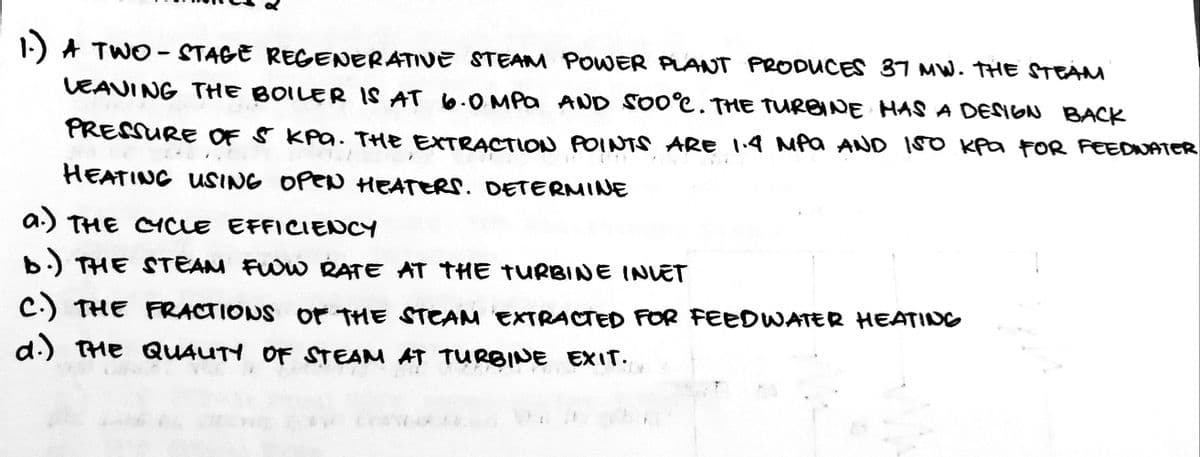 1.) A TWO-STAGE REGENERATIVE STEAM POWER PLANT PRODUCES 37 MW. THE STEAM
LEAVING THE BOILER IS AT 6.0MPa AND 500°C. THE TURBINE HAS A DESIGN BACK
PRESSURE OF 5 KPa. THE EXTRACTION POINTS ARE 1.4 MPa AND 150 KPa FOR FEEDWATER
HEATING USING OPEN HEATERS. DETERMINE
a.) THE CYCLE EFFICIENCY
b.) THE STEAM FLOW RATE AT THE TURBINE INLET
C.) THE FRACTIONS OF THE STEAM EXTRACTED FOR FEEDWATER HEATING
d.) THE QUALITY OF STEAM AT TURBINE EXIT.